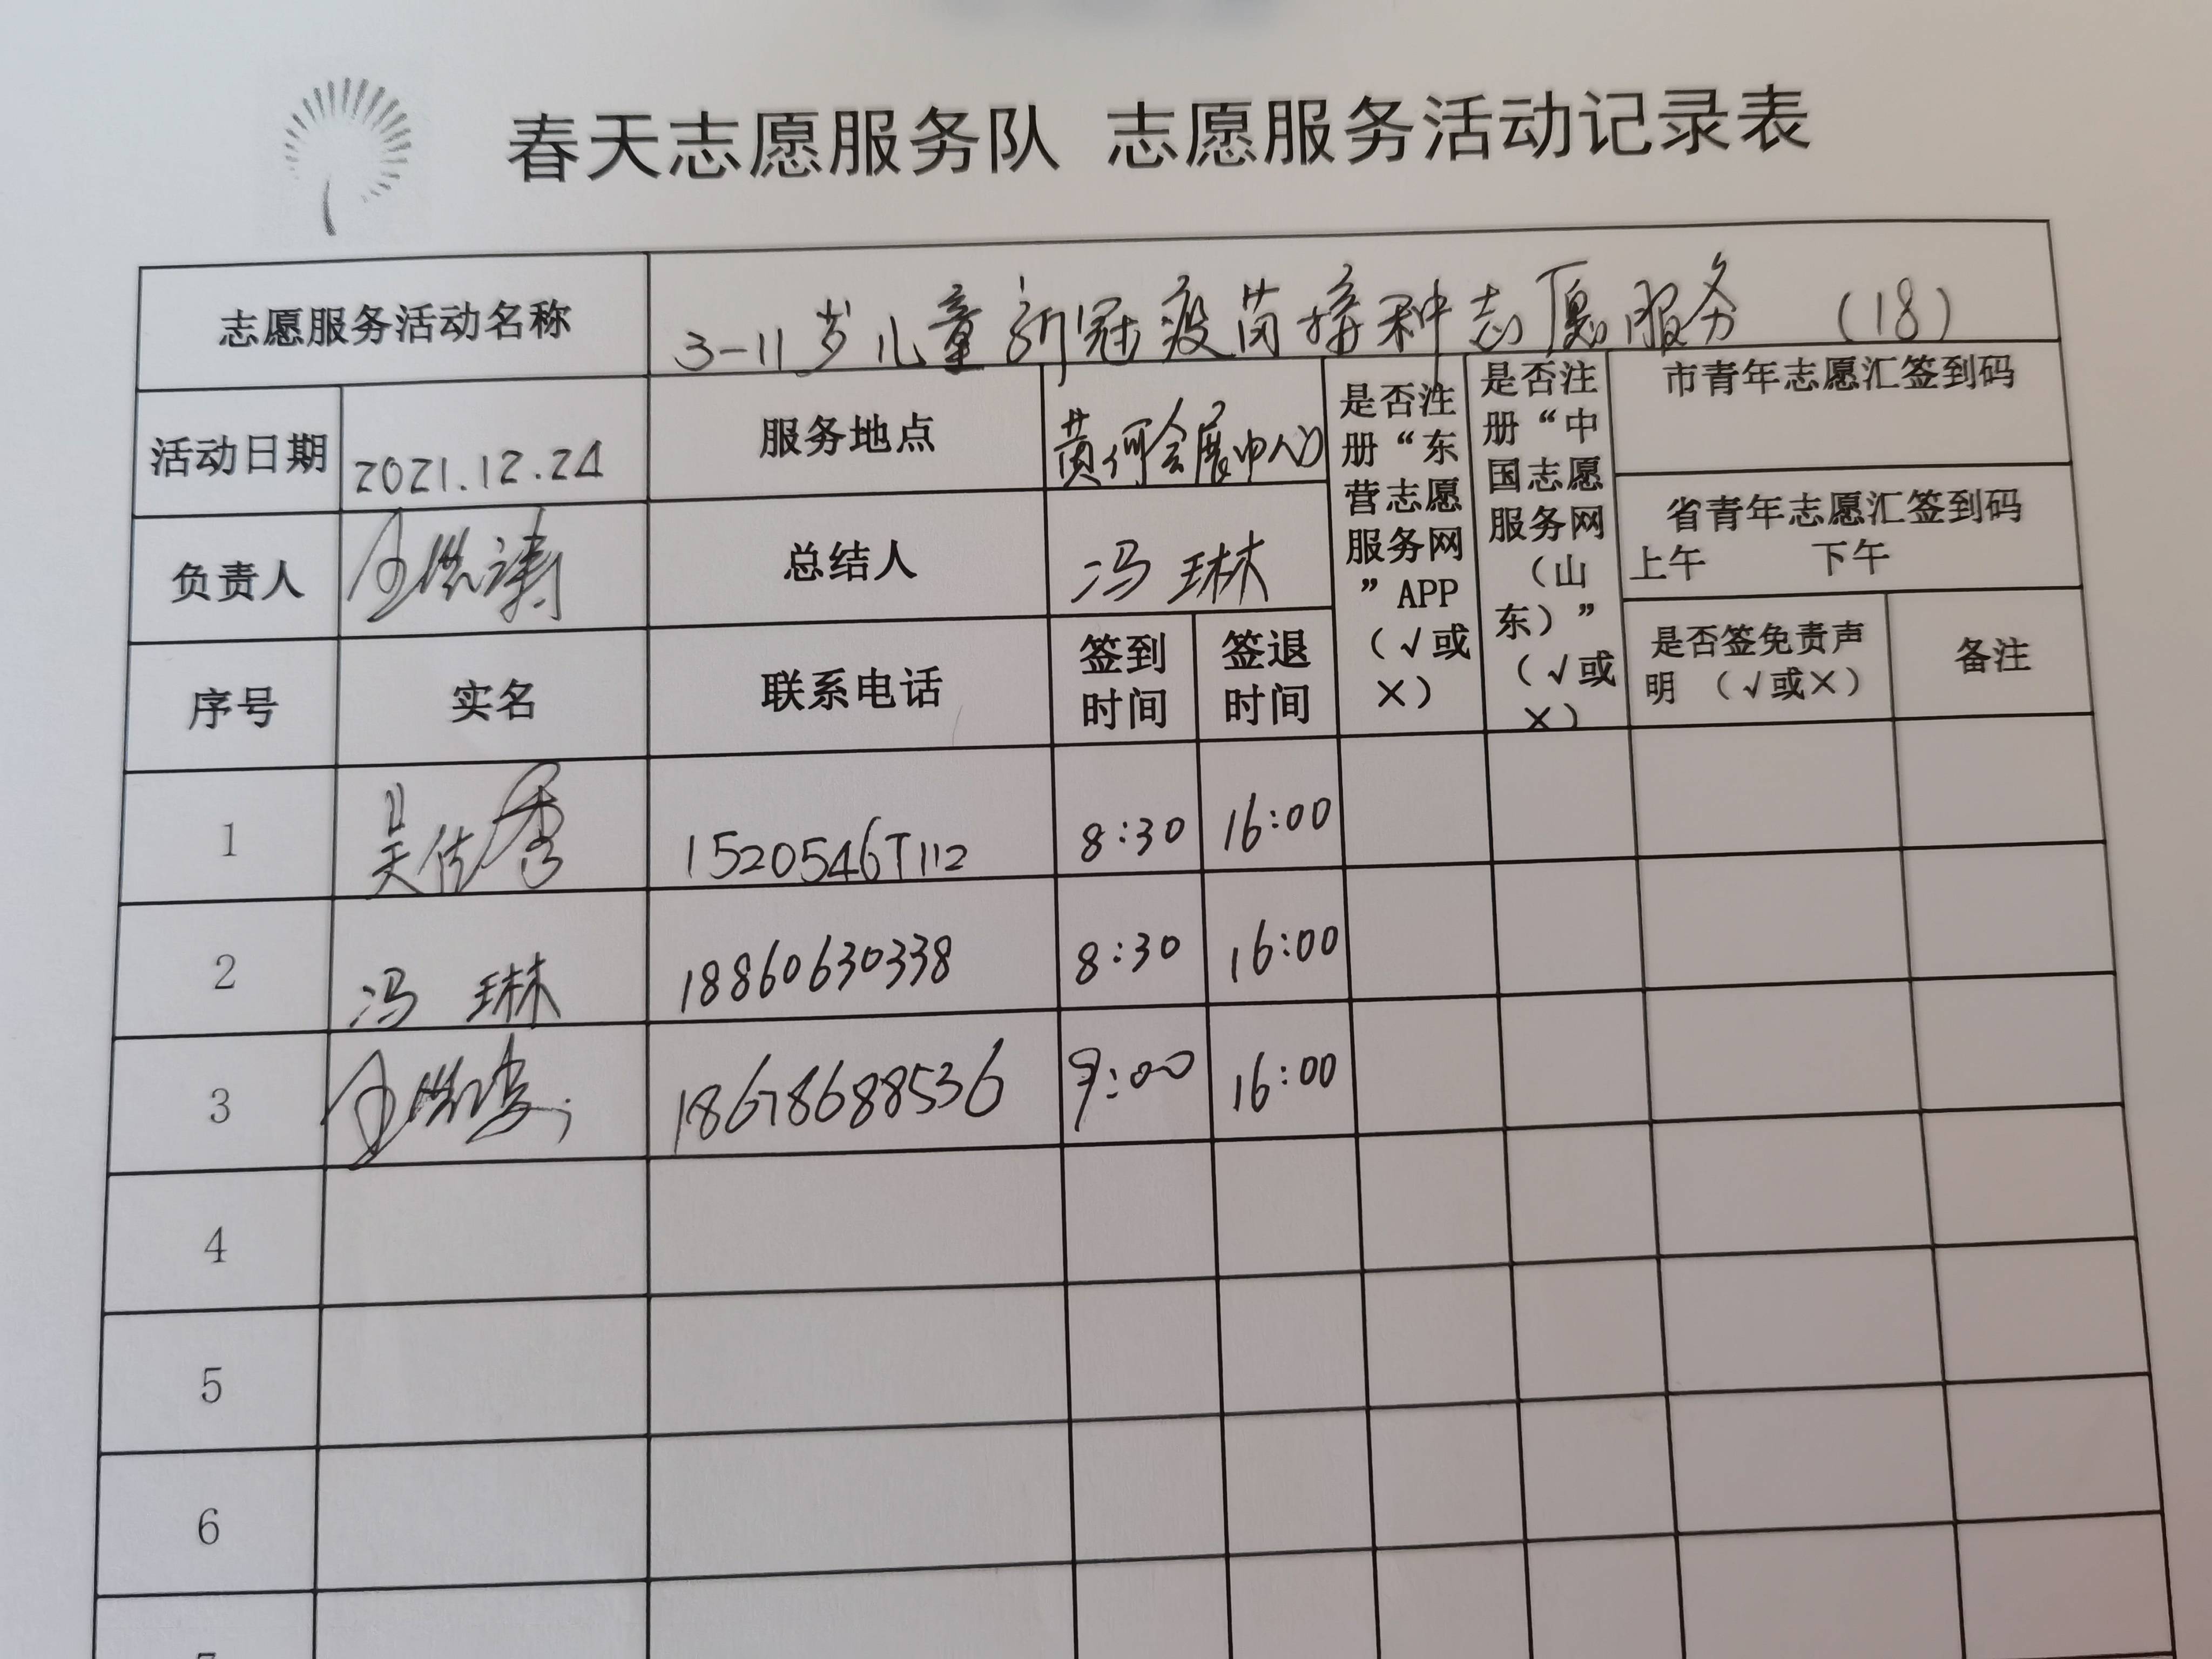 春天志愿服务队 志愿服务活动记录表
志愿服务活动名称 3-11岁儿童新冠疫苗接种志愿服务 (18)
活动日期 2021.12.24 服务地点 黄河会展中心
是否注册“东营志愿服务网”APP（√或×）
是否注册“中国志愿服务网（山东）”（√或×）
市青年志愿汇签到码
省青年志愿汇签到码
上午 下午
负责人 总结人 冯琳
序号 实名 联系电话 签到时间 签退时间 是否签免责声明（√或×） 备注
1 吴 秀 15205467112 8:30 16:00
2 冯琳 18860630338 8:30 16:00
3 18678688536 9:00 16:00
4
5
6